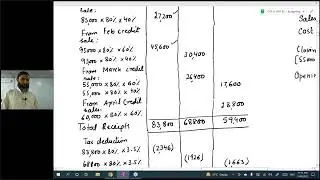 sale:
83,000 x 80% x 40% 27,200 Sales
From Feb credit Cost
sale:
95,000 x 80% x 60% 45,600
95,000 x 80% x 40% 30,400 Claim
From March credit [55000
sale:
55,000 x 80% x 60% 26,400 Openin
55,000 x 80% x 40% 17,600
From April credit
sale:
60,000 x 80% x 60% 28,800
Total Receipts 83,800 68800 59,400
Tax deduction
83,800 x 80% x 3.5% (2346)
68800 x 80% x 3.5% (1926)
(1,663)